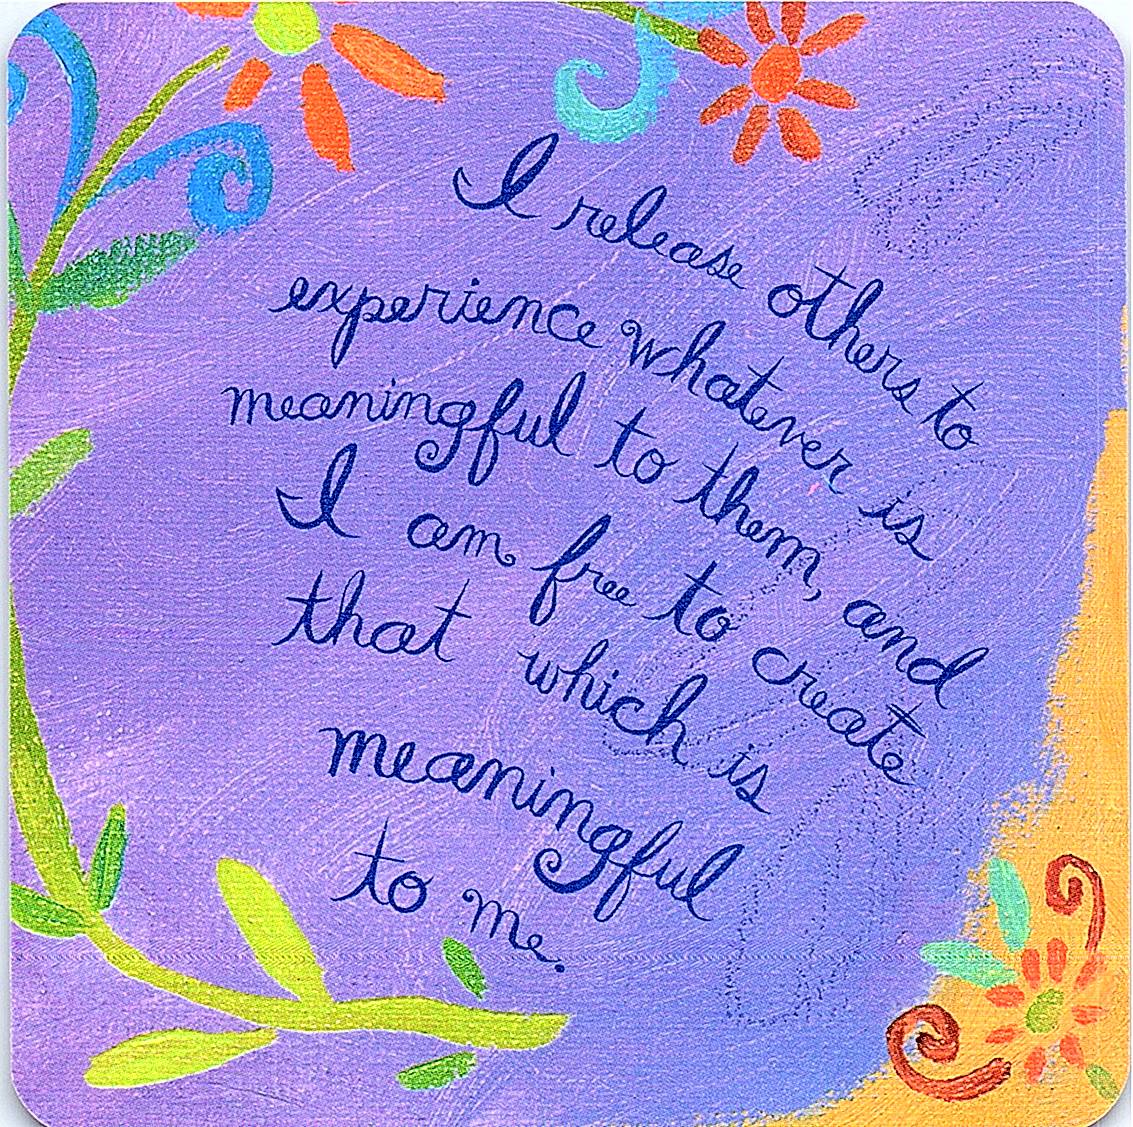 I release others to
experience whatever is
meaningful to them, and
I am free to create
that which is
meaningful
to me.